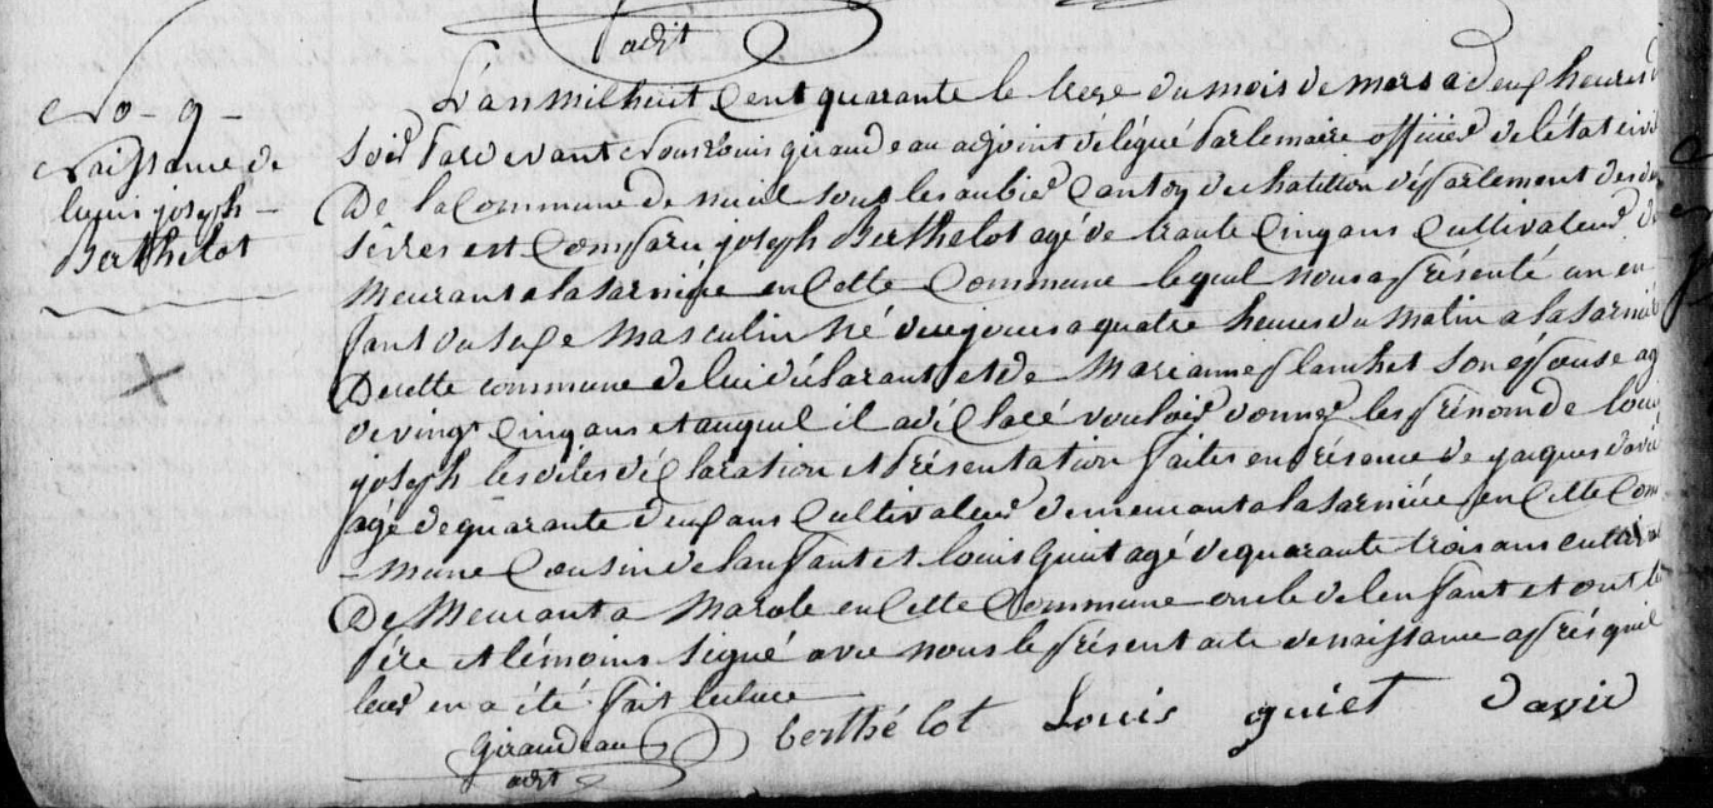 adjt
No - 9 -
Naissance de
louis joseph -
Berthelot
L'an mil huit Cent quarante le treze du mois de mars a deux heures
soir Pardevant Nous Louis giraudeau adjoint délégué Par le maire officier de l'état civil
De la Commune de nueil sous les aubier Canton de chatillon département des deux
sèvres est Comparu joseph Berthelot agé de trante Cinq ans Cultivateur
Meurant a la sarnière en Cette Commune lequel nous a présenté un en
fant du sexe Masculin Né a quatre heures du Matin a la sarnière
De cette commune de lui déclarant et de Marianne planchet son épouse ag
de vingt Cinq ans et auquel il a déClaré vouloir donner les prénom de louis
joseph les dites déClaration et Présentation faites en présence de jacques david
agé de quarante deux ans Cultivateur demeurant a la sarnière en Cette Com
- mune Cousin de lanfant et louis Guiet agé de quarante trois ans cultivat
De Meurant a Marole en Cette Commune oncle de lenfant et ont le
Père et témoins signé avec nous le présent acte de naissance après quil
leur en a été fait lecture
Giraudeau berthélot Louis guiet david
adjt